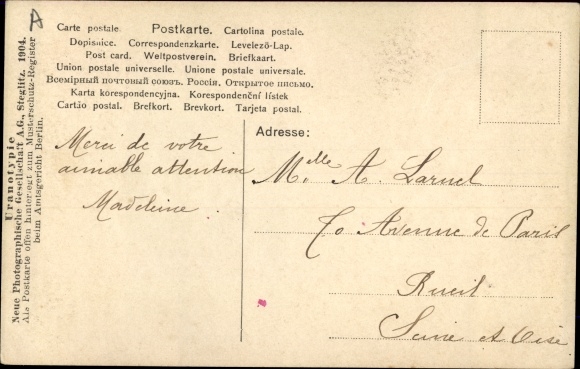 A
Uranotypie
Neue Photographische Gesellschaft A.G., Steglitz. 1904.
Als Postkarte offen hinterlegt zum Musterschutz-Register
beim Amtsgericht Berlin.
Carte postale. Postkarte. Cartolina postale.
Dopisnice. Correspondenzkarte. Levelező-Lap.
Post card. Weltpostverein. Briefkaart.
Union postale universelle. Unione postale universale.
Всемірный почтовый союзъ. Россія. Открытое письмо.
Karta korespondencyjna. Korespondenční lístek
Cartão postal. Brefkort. Brevkort. Tarjeta postal.
Merci de votre
aimable attention
Madeleine.
Adresse:
Melle A. Laruel
70 Avenue de Paris
Rueil
Seine et Oise